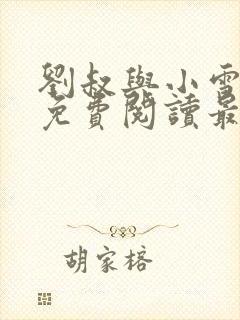 劉叔與小雪
免費閱讀最
胡家榕